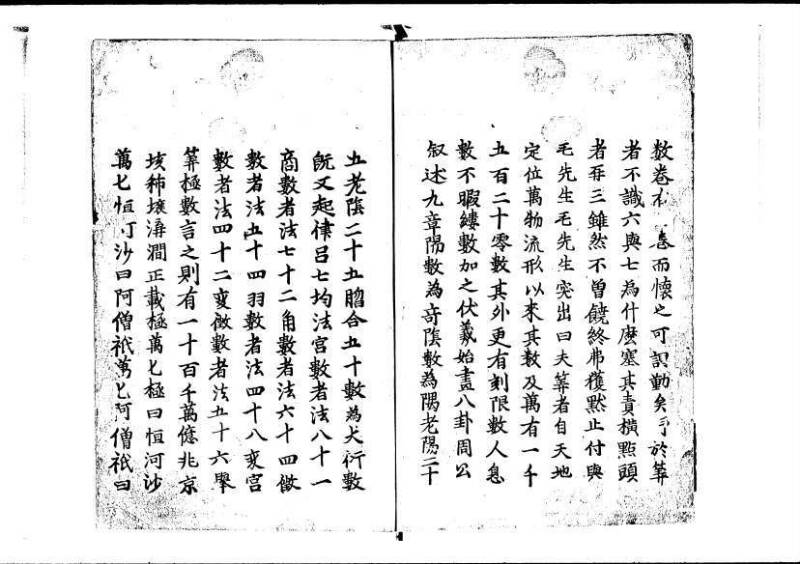 數卷不忘而懷之可謂勤矣予於筭
者不識六與七為什麼塞其責橫點頭
者再三雖然不曾饒終弗獲黙止付與
毛先生毛先生突出曰夫筭者自天地
定位萬物流形以來其數及萬有一千
五百二十零數其外更有刻限數人息
數不暇縷數加之伏羲始畫八卦周公
叙述九章陽數為奇陰數為隅老陽二十
五老陰二十五䐇合五十數為大衍數
既又起律呂七均法宮數者法八十一
商數者法七十二角數者法六十四徵
數者法五十四羽數者法四十八変宮
數者法四十二変徵數者法五十六擧
筭極數言之則有一十百千萬億兆京
垓秭壤溝澗正載極萬〻極曰恒河沙
萬〻恒河沙曰阿僧祇萬〻阿僧祇曰